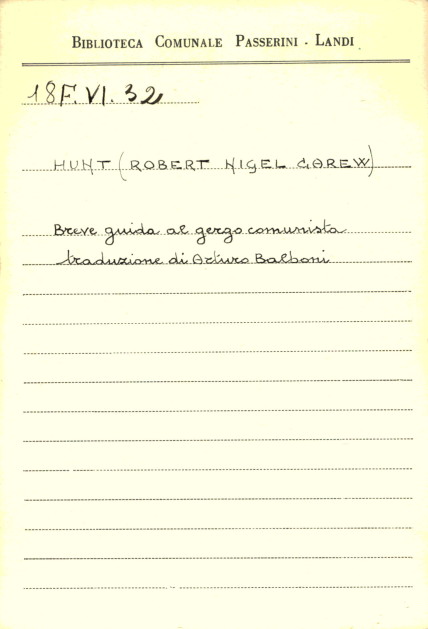 BIBLIOTECA COMUNALE PASSERINI - LANDI
18F. VI. 32
HUNT (ROBERT NIGEL CAREW)
Breve guida al gergo comunista
traduzione di Arturo Balboni